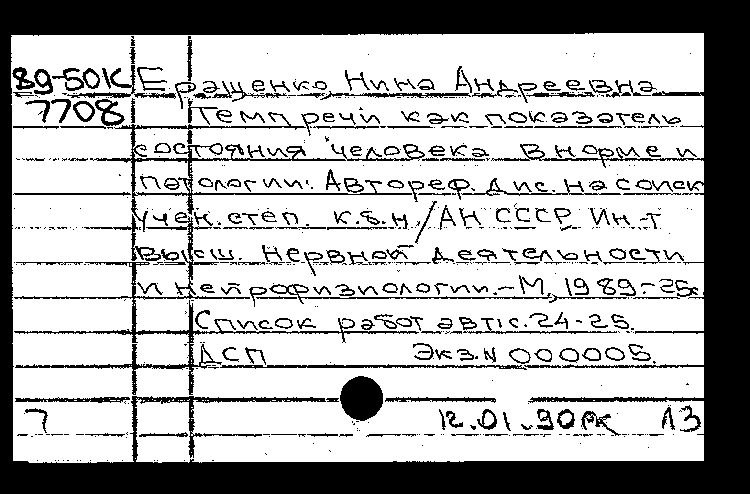 89-50К Еращенко, Нина Андреевна.
7708 Темп речи как показатель
состояния человека в норме и
патологии: Автореф. дис. на соиск
учен. степ. к.б.н./АН СССР Ин-т
высш. нервной деятельности
и нейрофизиологии.-М, 1989-25с.
Список работ авт: с.24-25.
ДСП Экз.N 000005.
7 12.01.90РК ЛЗ